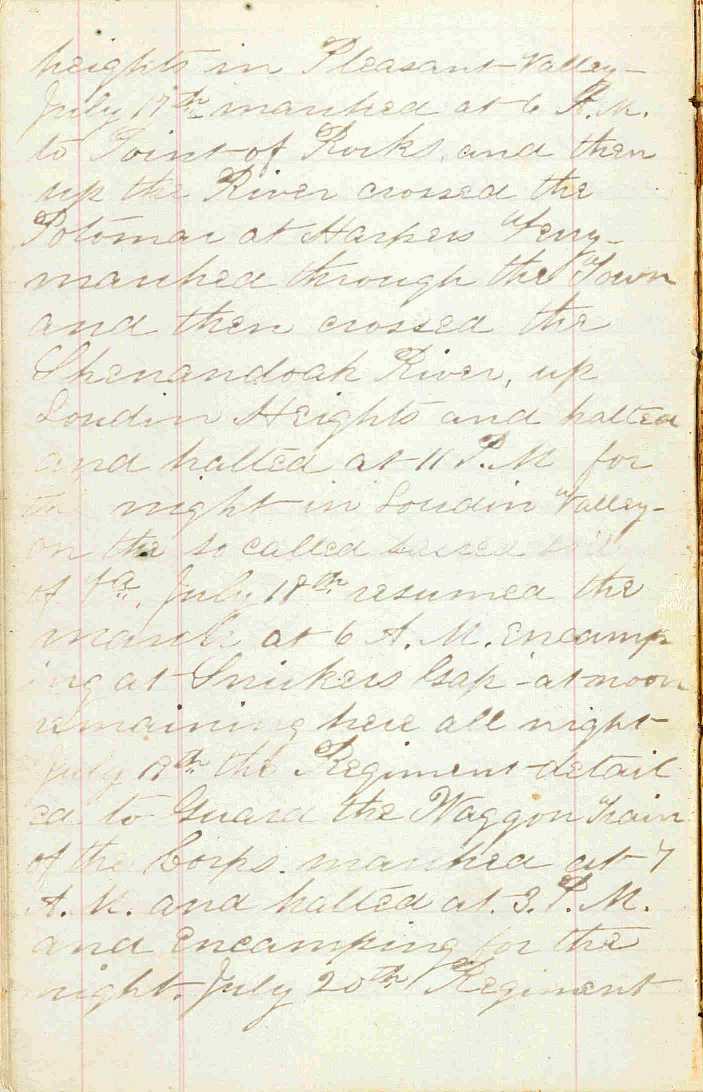 heights in Pleasant Valley-
July 17th marched at 6 A.M.
to Point of Rocks, and then
up the River crossed the
Potomac at Harpers Ferry-
marched through the Town
and then crossed the
Shenandoah River, up
Loudin Heights and halted
and halted at 11 P.M for
the night in Loudin Valley-
on the so called sacred soil
of Va. July 18th resumed the
march at 6 A.M. Encamp
ing at Snickers Gap - at noon
remaining here all night
July 19th the Regiment detail
ed to Guard the Waggon Train
of the Corps. marched at 7
A.M. and halted at 3. P.M.
and Encamping for the
night. July 20th Regiment